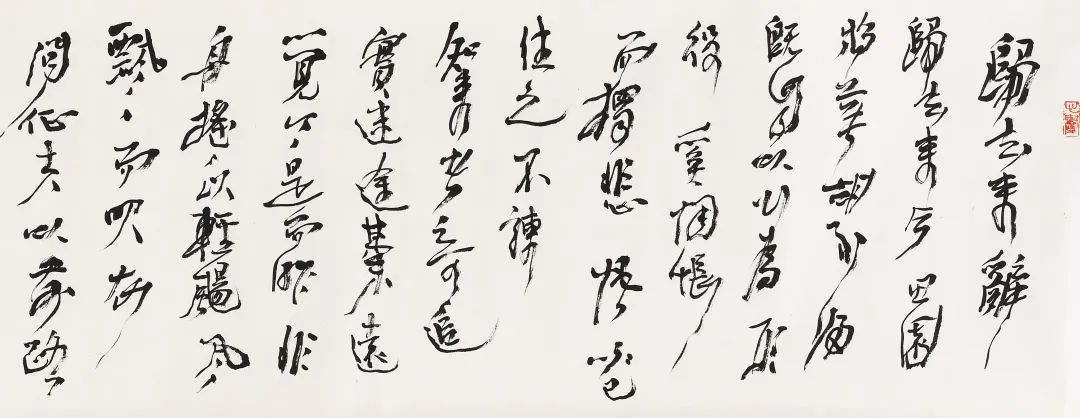 歸去來辭
歸去來兮田園
將蕪胡不歸
既自以心為形
役奚惆悵
而獨悲悟已
往之不諫
知來者之可追
實迷途其未遠
覺今是而昨非
舟搖以輕颺風
飄〻而吹衣
問征夫以前路